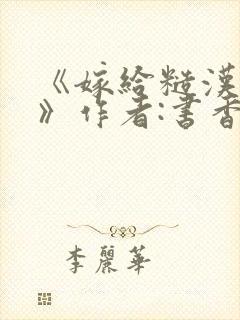 《嫁給糙漢
》作者:書香
李麗華